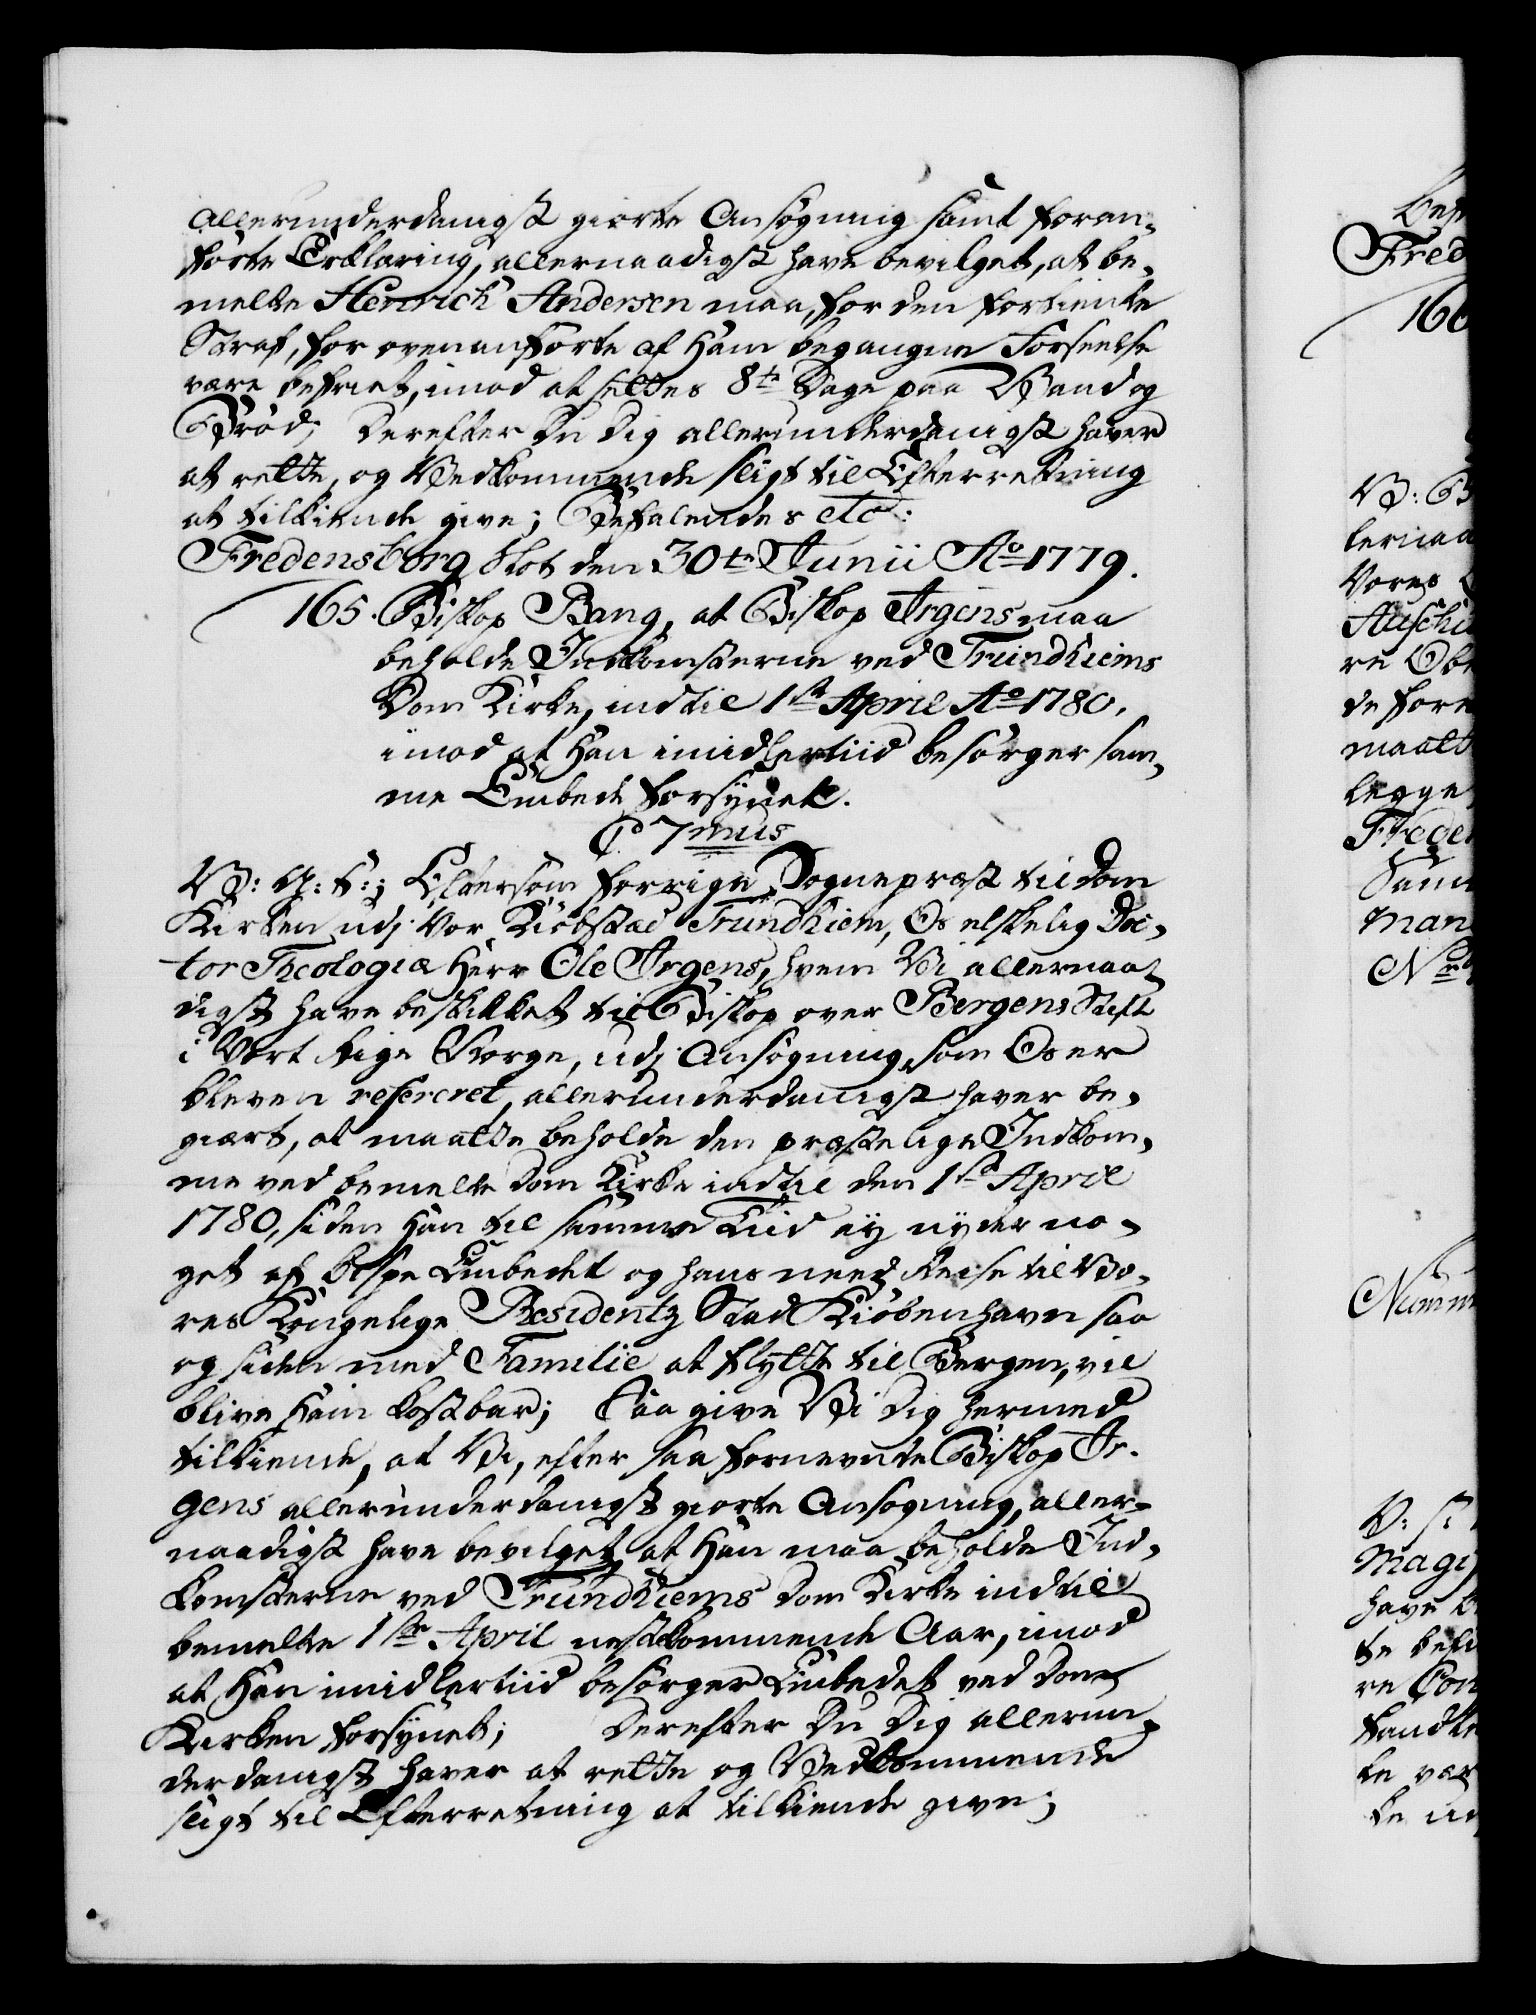 allerunderdanigst giorte Ansøgning samt foran-
førte Erklæring, allernaadigst have bevilget, at be-
melte Henrich Andersen maa, for den fortiente
Straf, for ovenanførte af Ham begangne Forseelse
være befriet, imod at settes 8te Dage paa Vand og
Brød; Derefter Du Dig allerunderdanigst haver
at rette, og Vedkommende sligt til Efterretning
at tilkiende give; Befalendes etc:
Fredensborg Slot den 30te Junii Ao 1779.
165. Biskop Bang, at Biskop Irgens maa
beholde Indkomsterne ved Trundhiems
Dom Kirke, indtil 1ste April Ao 1780,
imod at Han imidlertiid besørger sam-
me Embede forsynet.
C. 7mus
V: G: T:; Eftersom forrige Sognepræst til Dom
Kirken udj Vor Kiøbstad Trundhiem, Os elskelig Doc-
tor Theologiæ Herr Ole Irgens, hvem Vi allernaa-
digst have beskikket til Biskop over Bergens Stift
i Vort Rige Norge, udj Ansøgning, som Os er
bleven refereret, allerunderdanigst haver be-
giært, at maatte beholde den præstelige Indkom-
me ved bemelte Dom Kirke indtil den 1ste April
1780, siden Han til samme Tiid ey nyder no-
get af Bispe Embedet og hans need Reise til Vo-
res Kongelige Residentz Stad Kiøbenhavn saa
og siden med Familie at flytte til Bergen, vil
blive Ham kostbar; Saa give Vi Dig hermed
tilkiende, at Vi, efter saa fornevnte Biskop Ir-
gens allerunderdanigst giorte Ansøgning, aller-
naadigst have bevilget, at Han maa beholde Ind-
komsterne ved Trundhiems Dom Kirke indtil
bemelte 1ste April nestkommende Aar, imod
at Han imidlertiid besørger Embedet ved Dom
Kirken forsynet; Derefter Du Dig allerun-
derdanigst haver at rette og Vedkommende
sligt til Efterretning at tilkiende give;
Fred
166
V: G
lernaa
Vores
re Obe
de fore
maatte
legge
Freden
Sam
man
Numm
V: S:
Magi
have b
te befa
re Con
te vær
te ud